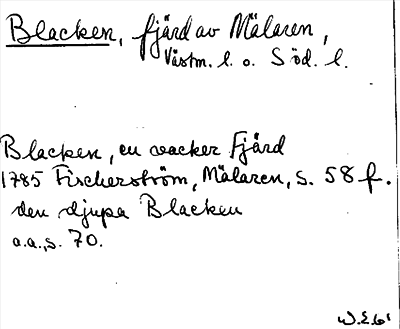 Blacken, fjärd av Mälaren,
Västm. l. o. Söd. l.
Blacken, en wacker Fjärd
1785 Fischerström, Mälaren, s. 58 f.
den djupa Blacken
a.a., s. 70.